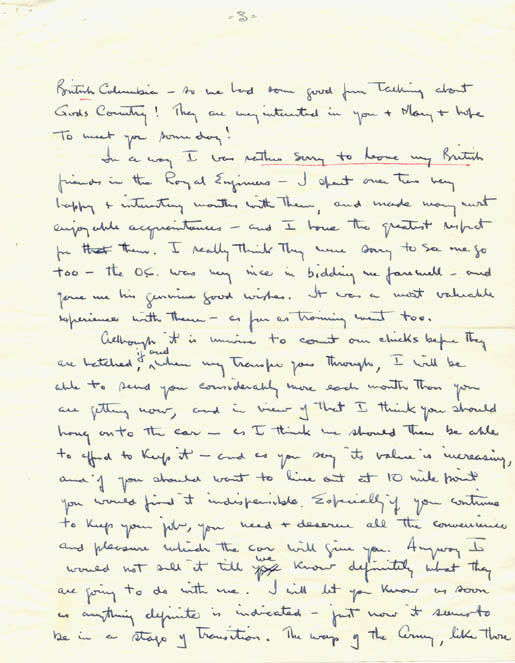 -3-
British Columbia - so we had some good fun talking about
Gods Country! They are very interested in you + Mary + hope
To meet you some day!
In a way I was rather sorry to leave my British
friends in the Royal Engineers - I spent over two very
happy + interesting months with them, and made many most
enjoyable acquaintances - and I have the greatest respect
for that them. I really think they were sorry to see me go
too - the O.C. was very nice in bidding me farewell - and
gave me his genuine good wishes. It was a most valuable
experience with them - as far as training went too.
Although it is unwise to count our chicks before they
are hatched, if and when my transfer goes through, I will be
able to send you considerably more each month than you
are getting now, and in view of that I think you should
hang onto the car - as I think we should then be able
to afford to keep it - and as you say its value is increasing,
and if you should want to live out at 10 mile point
you would find it indispensible. Especially if you continue
to keep your job, you need + deserve all the convenience
and pleasure which the car will give you. Anyway I
would not sell it till we know definitely what they
are going to do with me. I will let you know as soon
as anything definite is indicated - just now it seems to
be in a stage of transition. The ways of the Army, like those